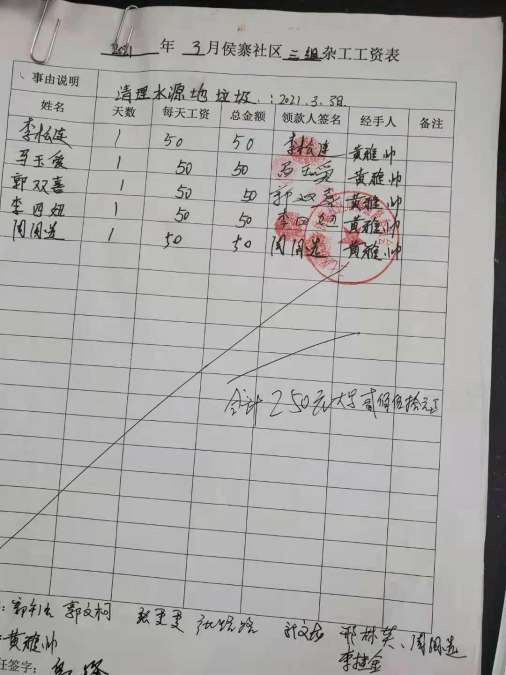 2021 年 3 月侯寨社区 三组 杂工工资表
事由说明 清理水源地垃圾 : 2021.3.3日
姓名 天数 每天工资 总金额 领款人签名 经手人 备注
李松连 1 50 50 李松连 黄雅帅
马玉爱 1 50 50 马玉爱 黄雅帅
郭双喜 1 50 50 郭双喜 黄雅帅
李四妞 1 50 50 李四妞 黄雅帅
周国选 1 50 50 周国选 黄雅帅
合计 250元 大写 贰佰伍拾元正
郭文柯 张更更 邢林英、周国选
黄雅帅 李建金
任签字: